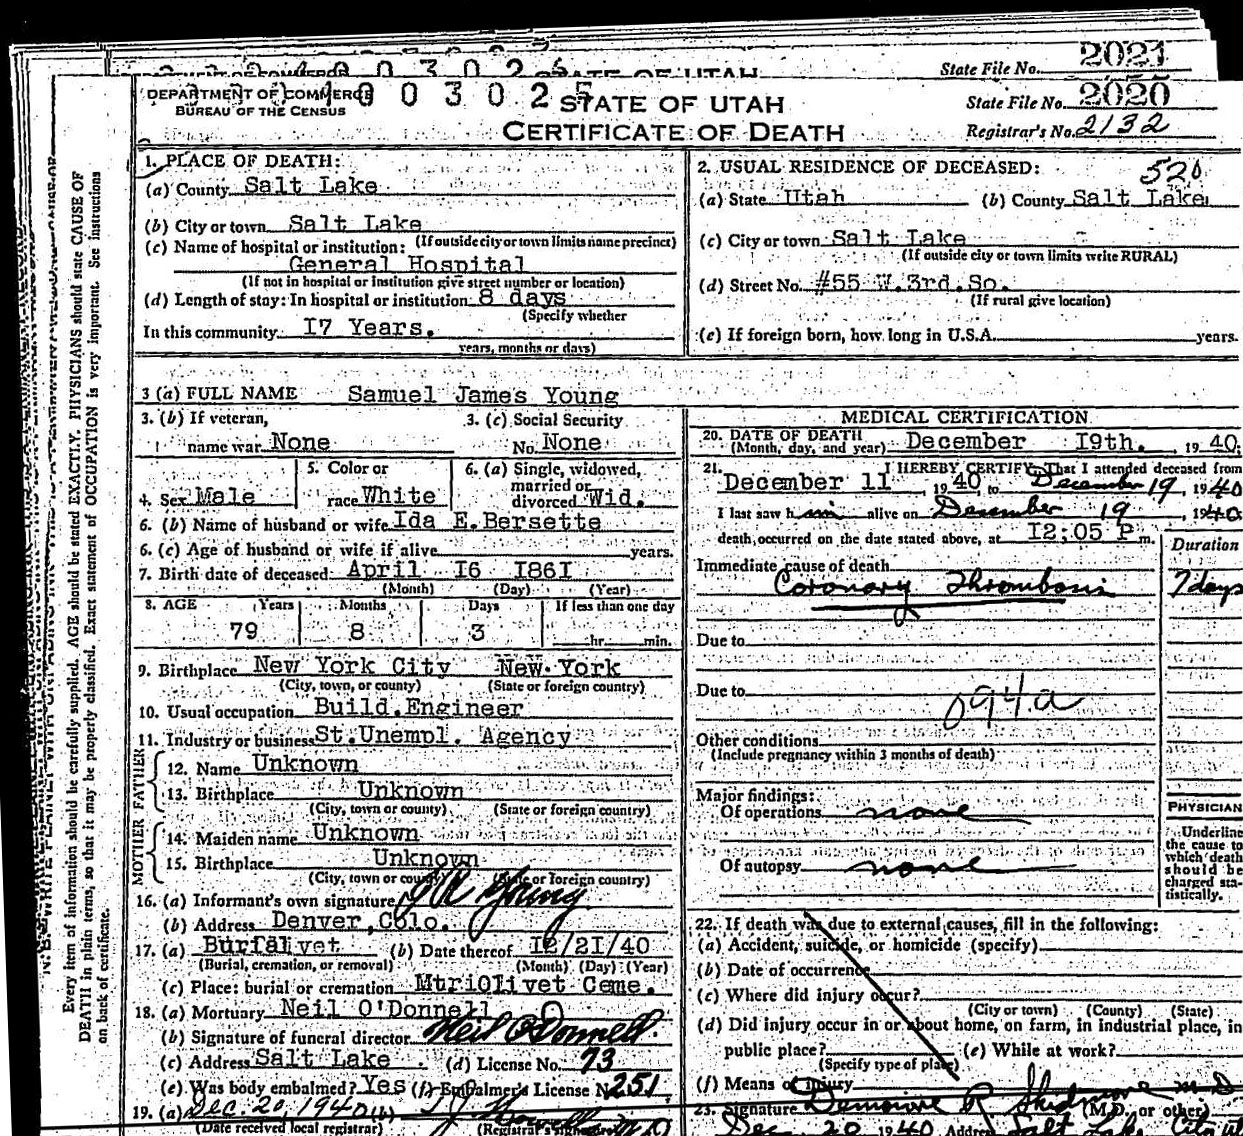 State File No. 2021
DEPARTMENT OF COMMERCE
BUREAU OF THE CENSUS
003025
STATE OF UTAH
CERTIFICATE OF DEATH
State File No. 2020
Registrar's No. 2132
1. PLACE OF DEATH:
(a) County Salt Lake
(b) City or town Salt Lake
(If outside city or town limits name precinct)
(c) Name of hospital or institution:
General Hospital
(If not in hospital or institution give street number or location)
(d) Length of stay: In hospital or institution 8 days
(Specify whether
In this community 17 Years.
years, months or days)
2. USUAL RESIDENCE OF DECEASED:
520
(a) State Utah (b) County Salt Lake
(c) City or town Salt Lake
(If outside city or town limits write RURAL)
(d) Street No. #55 W.3rd.So.
(If rural give location)
(e) If foreign born, how long in U.S.A. years.
3 (a) FULL NAME Samuel James Young
3. (b) If veteran,
name war None
3. (c) Social Security
No. None
4. Sex Male
5. Color or
race White
6. (a) Single, widowed,
married or
divorced Wid.
6. (b) Name of husband or wife Ida E.Bersette
6. (c) Age of husband or wife if alive years.
7. Birth date of deceased: April 16 1861
(Month) (Day) (Year)
8. AGE Years Months Days If less than one day
79 8 3 hr. min.
9. Birthplace New York City New York
(City, town, or county) (State or foreign country)
10. Usual occupation Build.Engineer
11. Industry or business St.Unempl. Agency
FATHER
12. Name Unknown
13. Birthplace Unknown
(City, town or county) (State or foreign country)
MOTHER
14. Maiden name Unknown
15. Birthplace Unknown
(City, town or county) (State or foreign country)
16. (a) Informant's own signature J R Young
(b) Address Denver,Colo.
17. (a) Burial (b) Date thereof 12/21/40
(Burial, cremation, or removal) (Month) (Day) (Year)
(c) Place: burial or cremation Mt. Olivet Ceme.
18. (a) Mortuary Neil O'Donnell
(b) Signature of funeral director Neil O'Donnell
(c) Address Salt Lake (d) License No. 73
(e) Was body embalmed? Yes (f) Embalmer's License No. 251
19. (a) Dec. 20, 1940 (b)
(Date received local registrar) (Registrar's signature)
MEDICAL CERTIFICATION
20. DATE OF DEATH
(Month, day, and year) December 19th. , 1940.
21. I HEREBY CERTIFY, That I attended deceased from
December 11 1940 to December 19, 1940
I last saw him alive on December 19, 1940
death occurred on the date stated above, at 12:05 P m.
Duration
Immediate cause of death
Coronary Thrombosis 7 days
Due to
Due to
094a
Other conditions
(Include pregnancy within 3 months of death)
Major findings:
Of operations none
Of autopsy none
PHYSICIAN
Underline
the cause to
which death
should be
charged sta-
tistically.
22. If death was due to external causes, fill in the following:
(a) Accident, suicide, or homicide (specify)
(b) Date of occurrence
(c) Where did injury occur?
(City or town) (County) (State)
(d) Did injury occur in or about home, on farm, in industrial place, in
public place? (e) While at work?
(Specify type of place)
(f) Means of injury
23. Signature R Skidmore M D
(M.D. or other)
Dec 20 1940 Address Salt Lake City
Every item of information should be carefully supplied. AGE should be stated EXACTLY. PHYSICIANS should state CAUSE OF
DEATH in plain terms, so that it may be properly classified. Exact statement of OCCUPATION is very important. See instructions
on back of certificate.